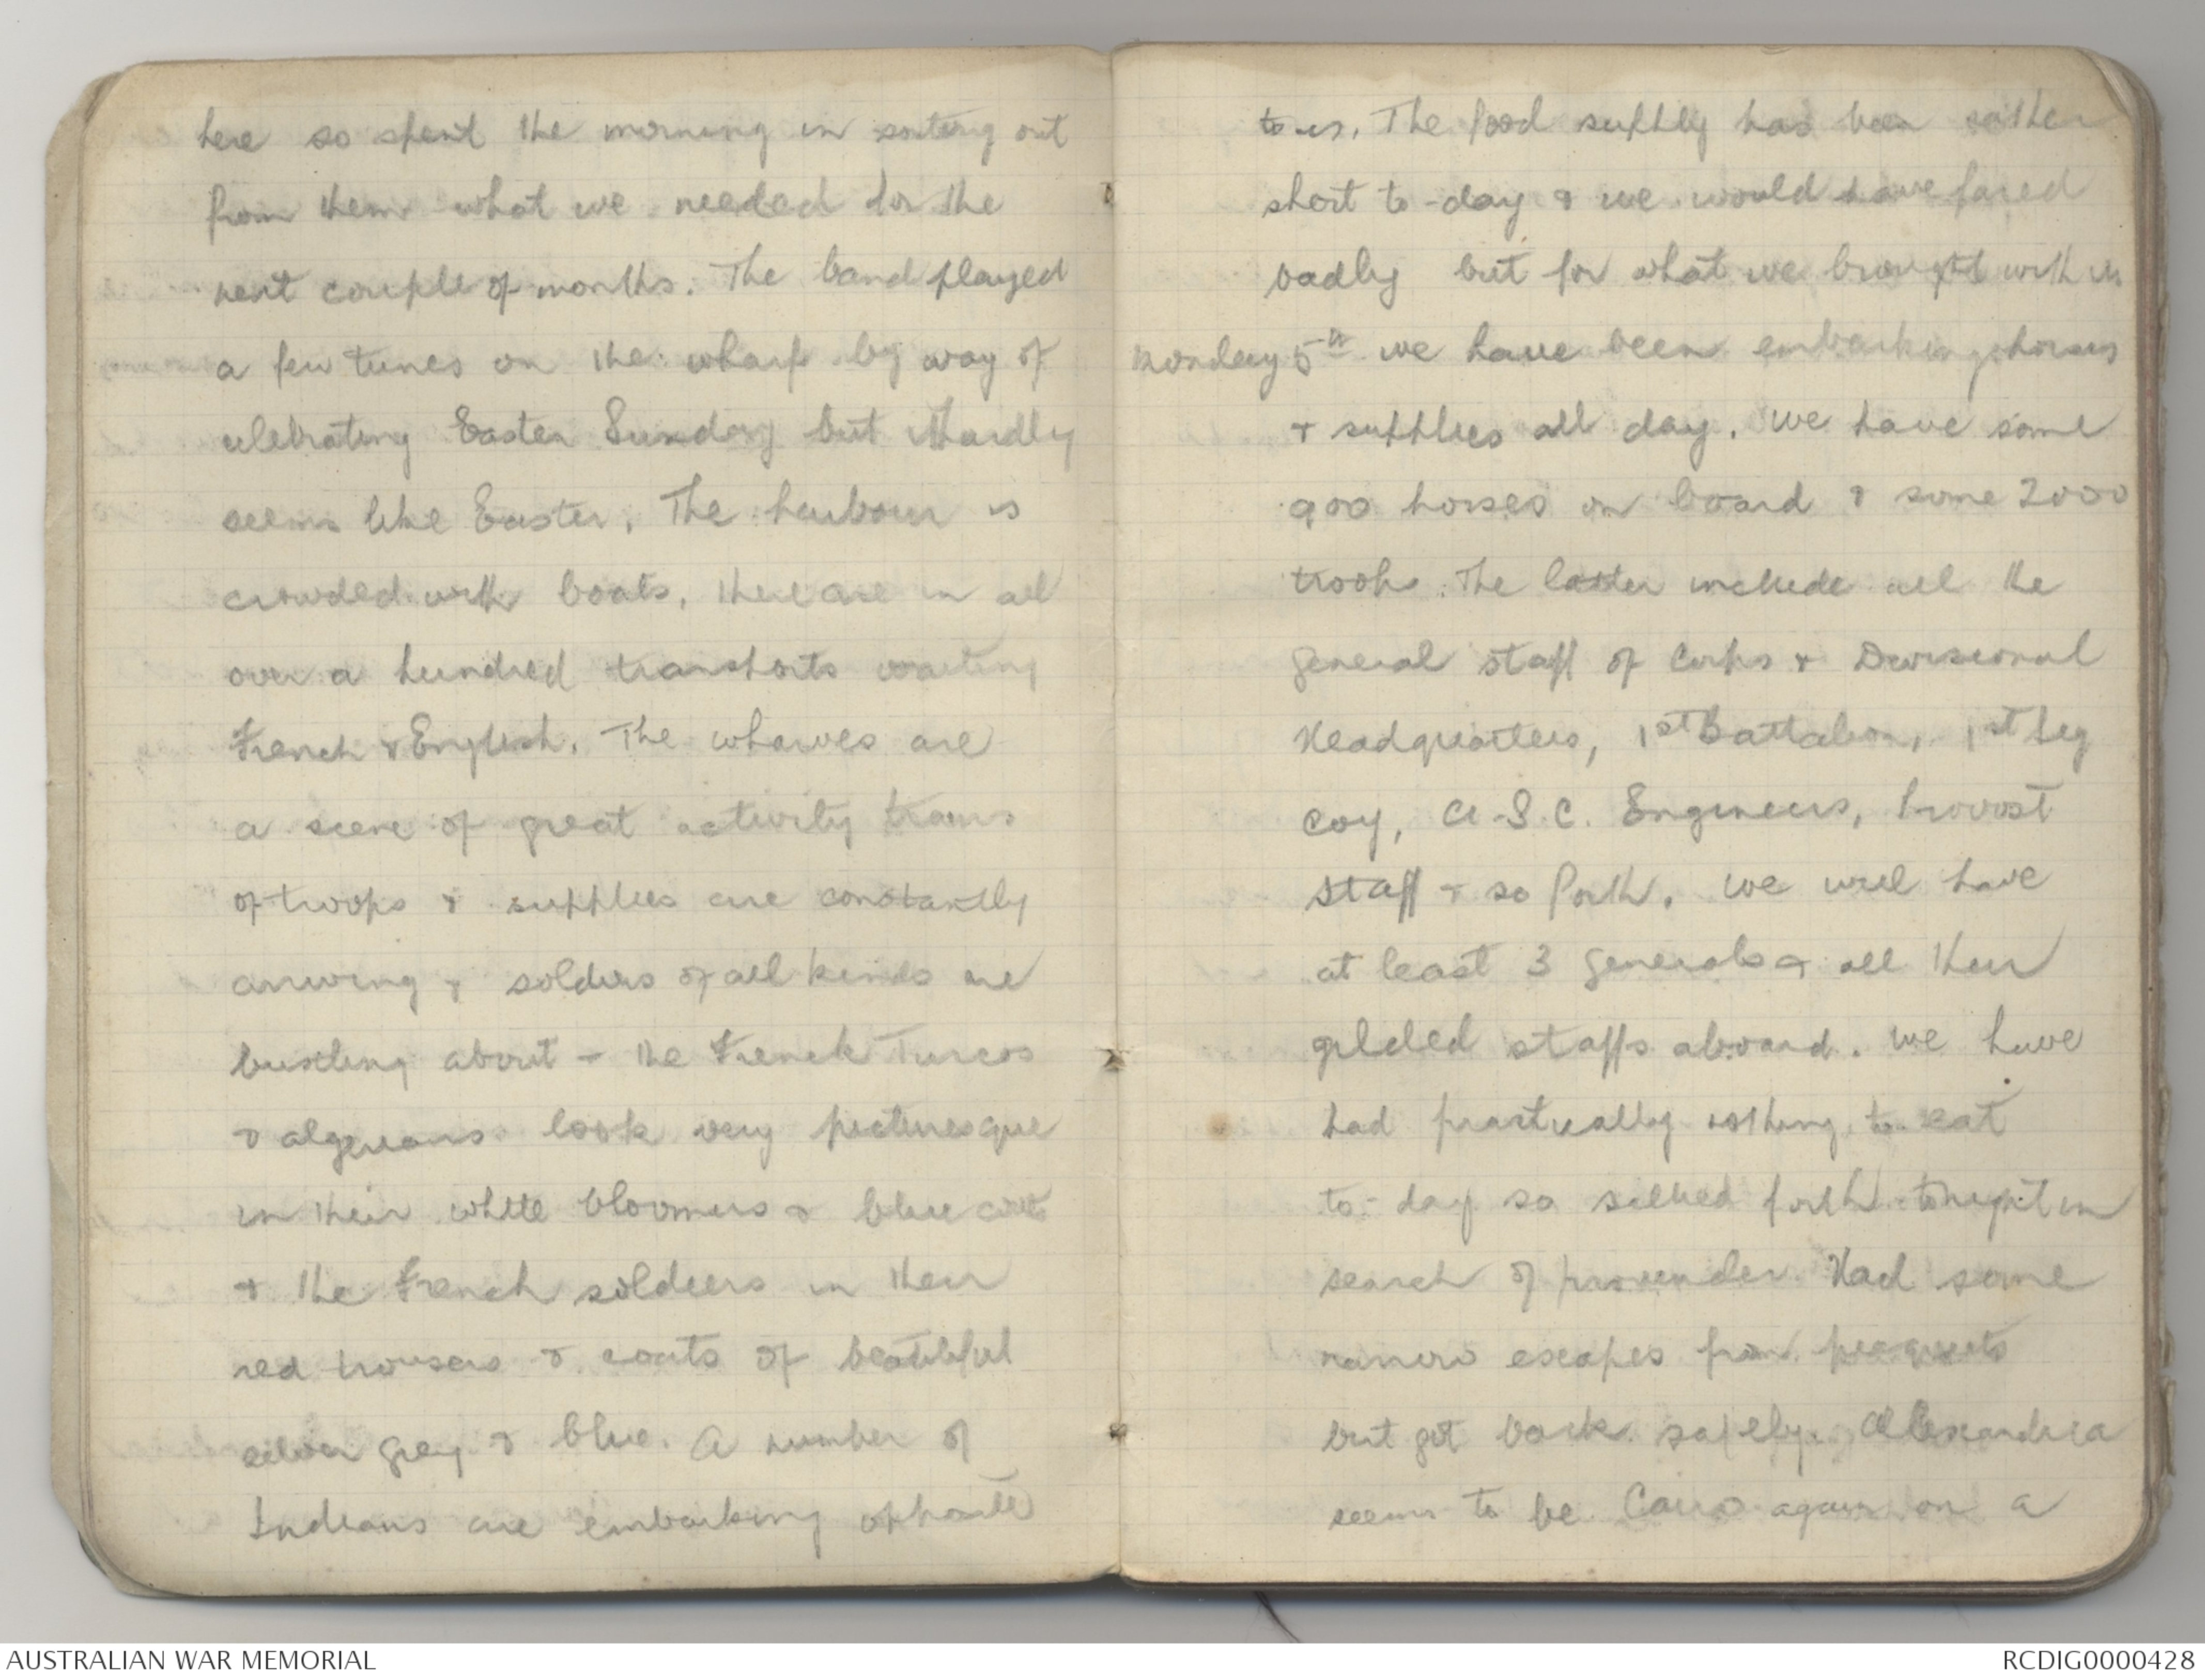 here so spent the morning in sorting out
from them what we needed for the
next couple of months. The band played
a few tunes on the wharf by way of
celebrating Easter Sunday but it hardly
seems like Easter. The harbour is
crowded with boats, there are in all
over a hundred transports waiting
French & English. The wharves are
a scene of great activity trains
of troops & supplies are constantly
arriving & soldiers of all kinds are
bustling about - the French Turcos
& algerians look very picturesque
in their white bloomers & blue coats
& the French soldiers in their
red trousers & coats of beautiful
silver grey & blue. A number of
Indians are embarking opposite
to us. The food supply has been rather
short to-day & we would have fared
badly but for what we brought with us
Monday 5th we have been embarking horses
& supplies all day. We have some
900 horses on board & some 2000
troops. The latter include all the
general staff of Corps & Divisional
Headquarters, 1st Battalion, 1st Sig
Coy, A.S.C. Engineers, Provost
Staff & so forth. We will have
at least 3 Generals & all their
gilded staffs aboard. We have
had practically nothing to eat
to-day so sallied forth tonight in
search of provender. Had some
narrow escapes from picquets
but got back safely. Alexandria
seems to be Cairo again on a
AUSTRALIAN WAR MEMORIAL
RCDIG0000428